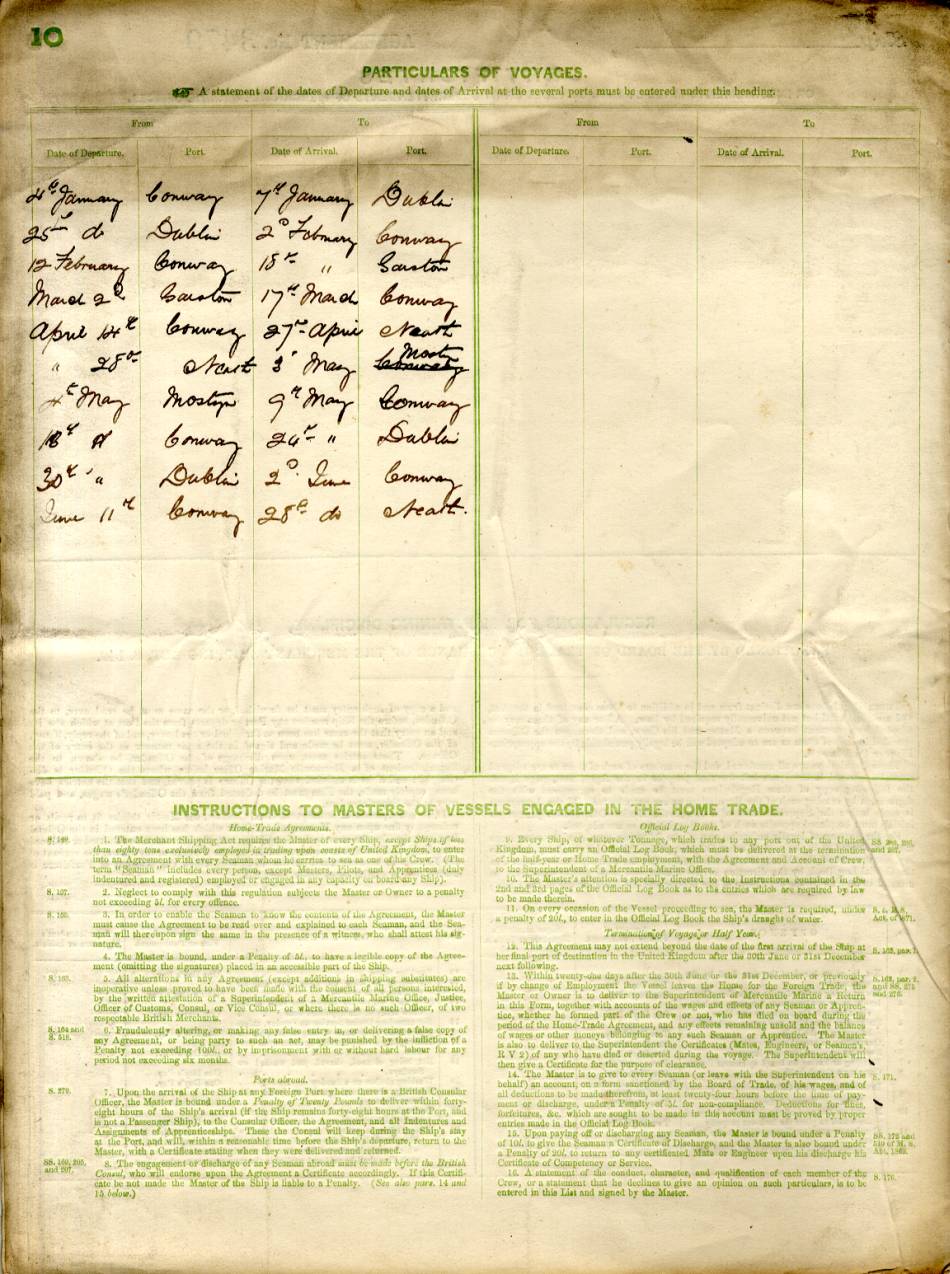 10
PARTICULARS OF VOYAGES.
A statement of the dates of Departure and dates of Arrival at the several ports must be entered under this heading.
From To From To
Date of Departure. Port. Date of Arrival. Port. Date of Departure. Port. Date of Arrival. Port.
4th January Conway 7th January Dublin
25th do Dublin 2D February Conway
12 February Conway 18th " Garston
March 2D Garston 17th March Conway
April 14th Conway 27th April Neath
" 28th Neath 3 May Mostyn
4th May Mostyn 9th May Conway
18th Conway 24th " Dublin
30th " Dublin 2D June Conway
June 11th Conway 28th do Neath.
INSTRUCTIONS TO MASTERS OF VESSELS ENGAGED IN THE HOME TRADE.
Home-Trade Agreements.
1. The Merchant Shipping Act requires the Master of every Ship, except Ships of less
than eighty tons exclusively employed in trading upon coasts of United Kingdom, to enter
into an Agreement with every Seaman whom he carries to sea as one of his Crew. (The
term "Seaman" includes every person, except Masters, Pilots, and Apprentices (duly
indentured and registered) employed or engaged in any capacity on board any Ship).
S. 107.
2. Neglect to comply with this regulation subjects the Master or Owner to a penalty
not exceeding 5l. for every offence.
3. In order to enable the Seamen to know the contents of the Agreement, the Master
must cause the Agreement to be read over and explained to each Seaman, and the Sea-
man will thereupon sign the same in the presence of a witness, who shall attest his sig-
nature.
4. The Master is bound, under a Penalty of 5l., to have a legible copy of the Agree-
ment (omitting the signatures) placed in an accessible part of the Ship.
S. 163.
5. All alterations in any Agreement (except additions in shipping substitutes) are
inoperative unless proved to have been made with the consent of all persons interested,
by the written attestation of a Superintendent of a Mercantile Marine Office, Justice,
Officer of Customs, Consul, or Vice Consul, or where there is no such Officer, of two
respectable British Merchants.
S. 164 and
S. 518.
6. Fraudulently altering, or making any false entry in, or delivering a false copy of
any Agreement, or being party to such an act, may be punished by the infliction of a
Penalty not exceeding 100l., or by imprisonment with or without hard labour for any
period not exceeding six months.
Ports abroad.
S. 279.
7. Upon the arrival of the Ship at any Foreign Port where there is a British Consular
Officer, the Master is bound under a Penalty of Twenty Pounds to deliver within forty-
eight hours of the Ship's arrival (if the Ship remains forty-eight hours at the Port, and
is not a Passenger Ship), to the Consular Officer, the Agreement, and all Indentures and
Assignments of Apprenticeships. These the Consul will keep during the Ship's stay
at the Port, and will, within a reasonable time before the Ship's departure, return to the
Master, with a Certificate stating when they were delivered and returned.
SS. 160, 205,
and 207.
8. The engagement or discharge of any Seaman abroad must be made before the British
Consul, who will endorse upon the Agreement a Certificate accordingly. If this Certifi-
cate be not made the Master of the Ship is liable to a Penalty. (See also pars. 14 and
15 below.)
Official Log Books.
9. Every Ship, of whatever Tonnage, which trades to any port out of the United
Kingdom, must carry an Official Log Book, which must be delivered at the termination
of the half-year or Home Trade employment, with the Agreement and Account of Crew,
to the Superintendent of a Mercantile Marine Office.
10. The Master's attention is specially directed to the Instructions contained in the
2nd and 3rd pages of the Official Log Book as to the entries which are required by law
to be made therein.
11. On every occasion of the Vessel proceeding to sea, the Master is required, under
a penalty of 20l., to enter in the Official Log Book the Ship's draught of water.
Termination of Voyage or Half Year.
12. This Agreement may not extend beyond the date of the first arrival of the Ship at
her final port of destination in the United Kingdom after the 30th June or 31st December
next following.
13. Within twenty-one days after the 30th June or the 31st December, or previously
if by change of Employment the Vessel leaves the Home for the Foreign Trade, the
Master or Owner is to deliver to the Superintendent of Mercantile Marine a Return
in this Form, together with accounts of the wages and effects of any Seaman or Appren-
tice, whether he formed part of the Crew or not, who has died on board during the
period of the Home-Trade Agreement, and any effects remaining unsold and the balance
of wages or other moneys belonging to any such Seaman or Apprentice. The Master
is also to deliver to the Superintendent the Certificates (Mates, Engineers, or Seamen's,
R V 2) of any who have died or deserted during the voyage. The Superintendent will
then give a Certificate for the purpose of clearance.
S. 171.
14. The Master is to give to every Seaman (or leave with the Superintendent on his
behalf) an account, on a form sanctioned by the Board of Trade, of his wages, and of
all deductions to be made therefrom, at least twenty-four hours before the time of pay-
ment or discharge, under a Penalty of 5l. for non-compliance. Deductions for fines,
forfeitures, &c. which are sought to be made in this account must be proved by proper
entries made in the Official Log Book.
15. Upon paying off or discharging any Seaman, the Master is bound under a Penalty
of 10l. to give the Seaman a Certificate of Discharge, and the Master is also bound under
a Penalty of 20l. to return to any certificated Mate or Engineer upon his discharge his
Certificate of Competency or Service.
S. 176.
16. A statement of the conduct, character, and qualification of each member of the
Crew, or a statement that he declines to give an opinion on such particulars, is to be
entered in this List and signed by the Master.